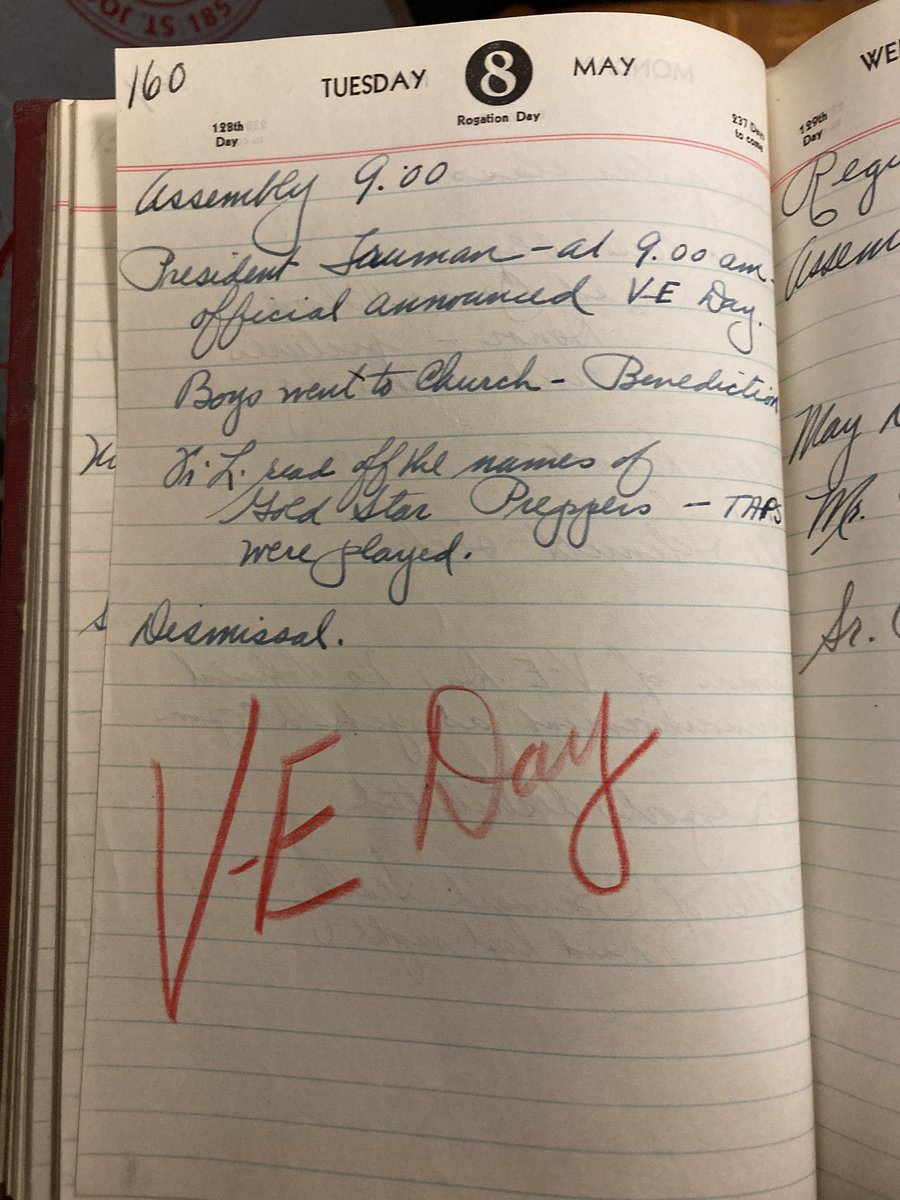 ST. JO
185
160
TUESDAY 8 MAY
128th Day
Rogation Day
237 Days to come
Assembly 9:00
President Truman - at 9.00 am.
official announced V-E Day.
Boys went to Church - Benediction
Fr. L. read off the names of
Gold Star Preppers - TAPS
were played.
Dismissal.
V-E Day
WE
129th Day
Regu
Assem
May
Mr.
Sr.